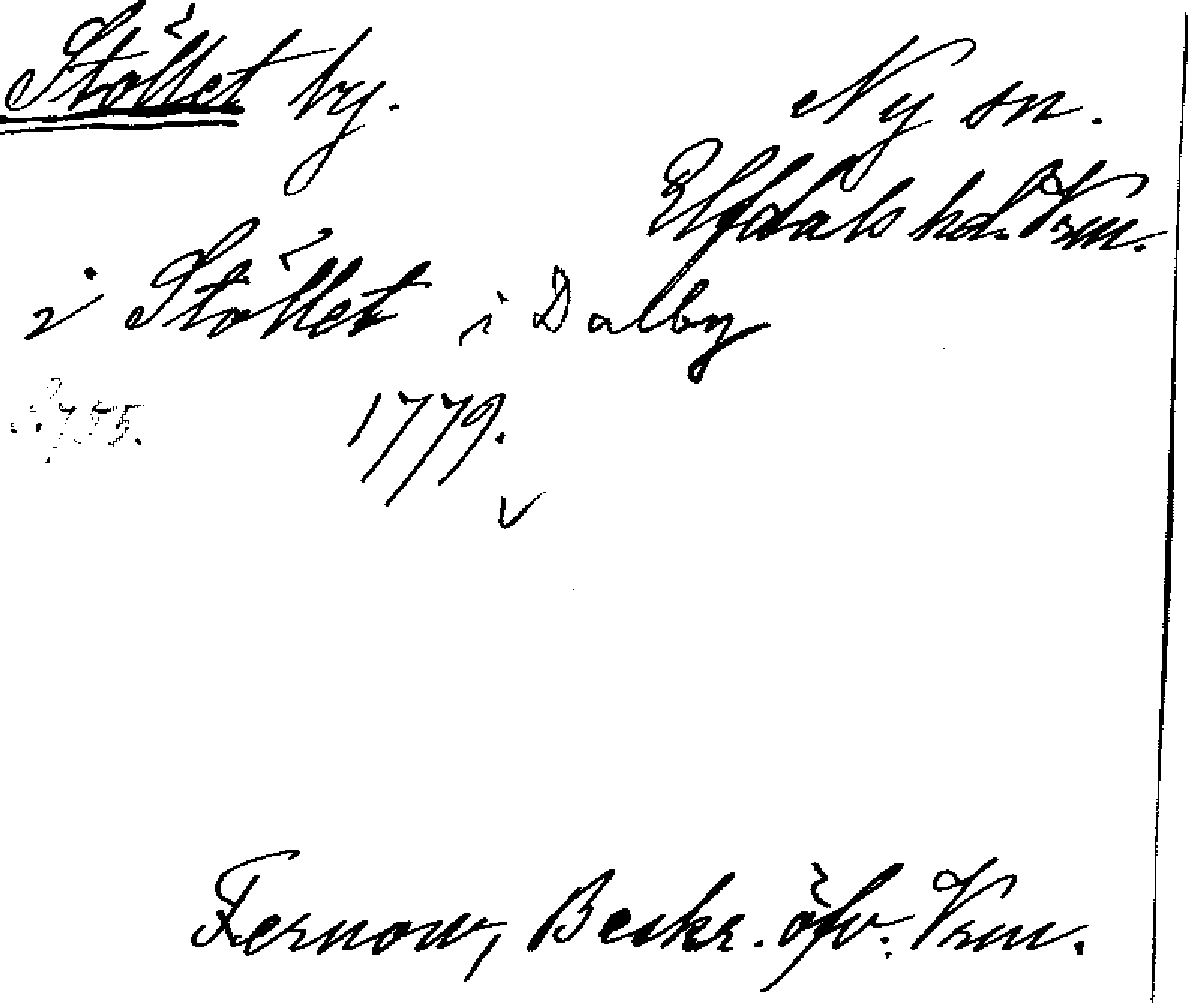 Stöllet by.
Ny sn.
Elfdals hd. Vrm.
i Stöllet i Dalby
S. 755.
1779.
Fernow, Beskr. öfv. Vrm.